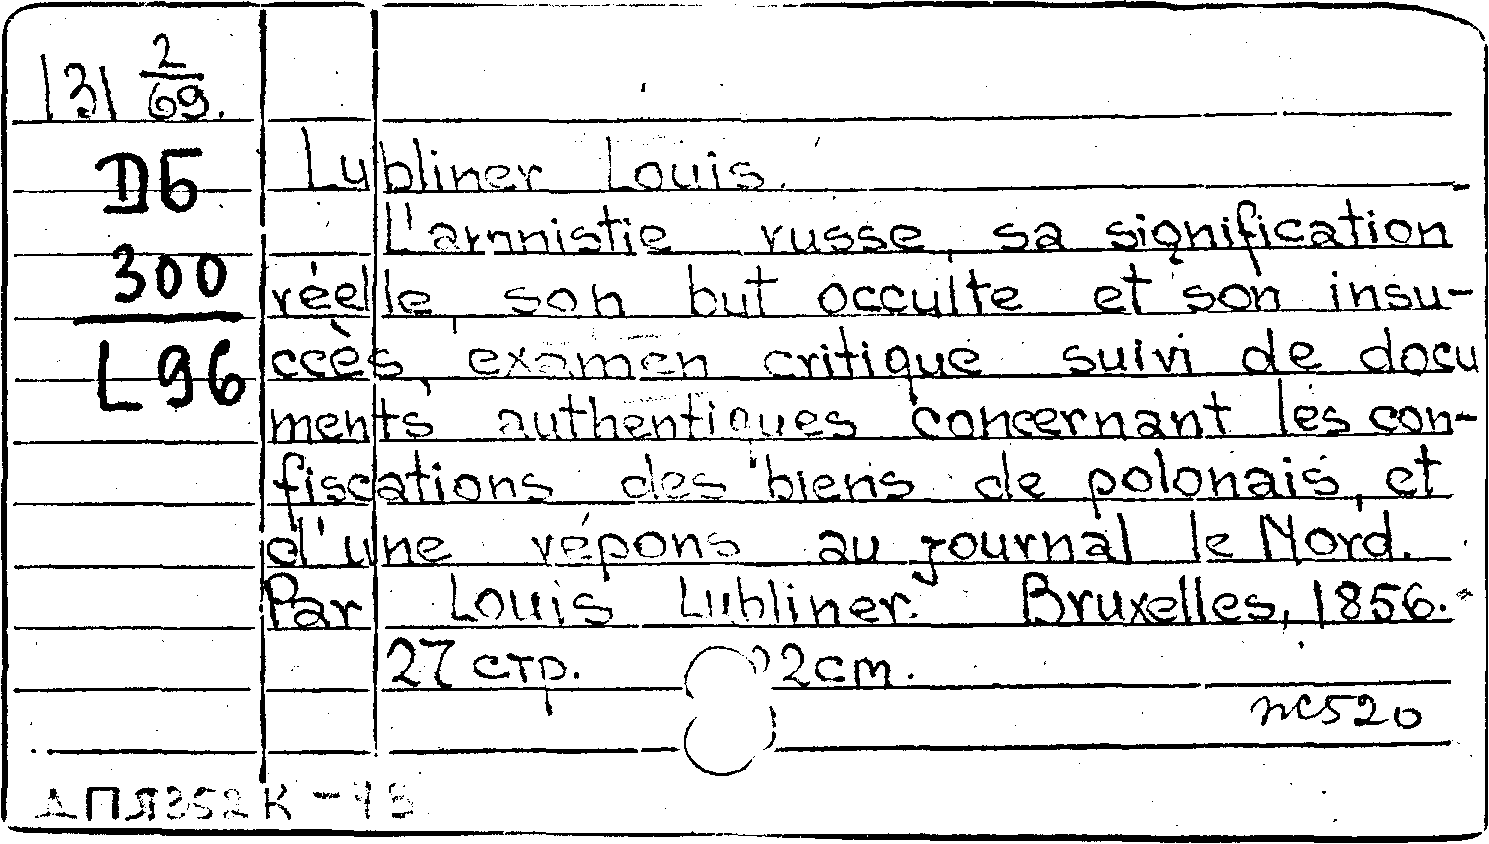 131 2/69.
DБ
300
L96
Lubliner Louis.
L'amnistie russe, sa signification
réelle, son but occulte et son insu-
ccès, examen critique suivi de docu
ments authentiques concernant les con-
fiscations des biens de polonais, et
d'une répons au journal le Nord.
Par Louis Lubliner. Bruxelles, 1856.
27 стр. 22cm.
пс520